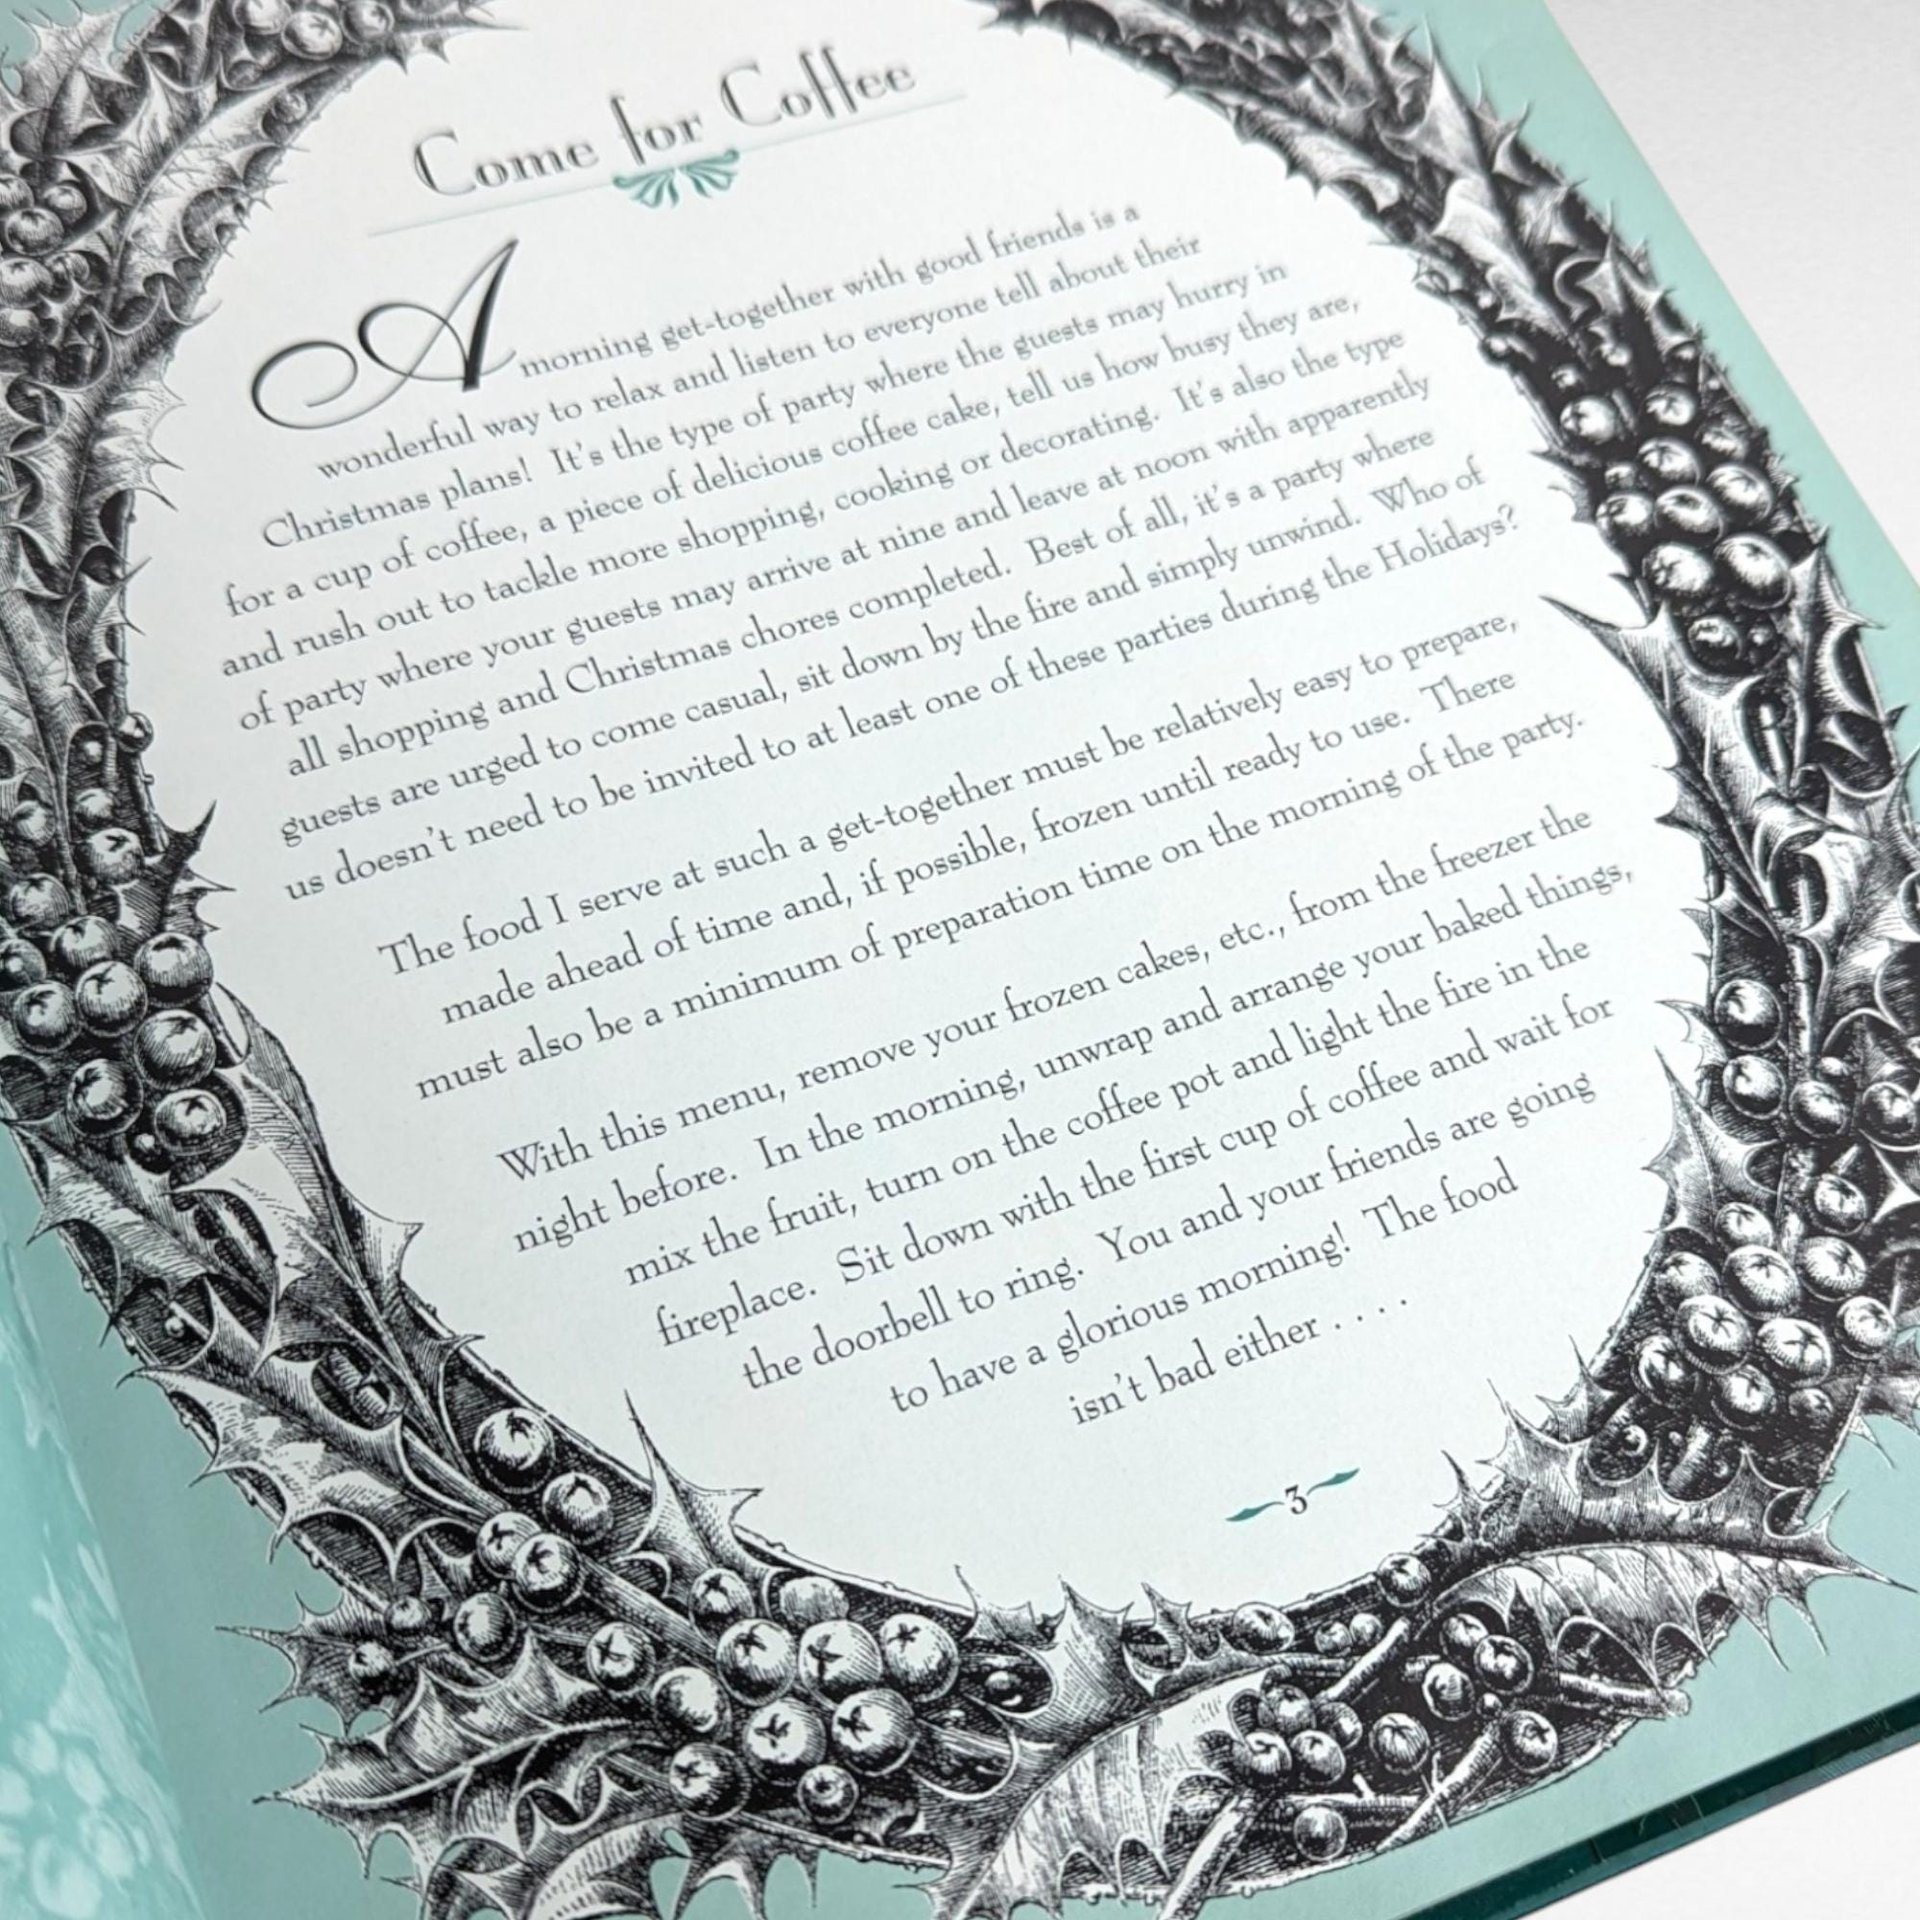 Come for Coffee
A morning get-together with good friends is a
wonderful way to relax and listen to everyone tell about their
Christmas plans! It's the type of party where the guests may hurry in
for a cup of coffee, a piece of delicious coffee cake, tell us how busy they are,
and rush out to tackle more shopping, cooking or decorating. It's also the type
of party where your guests may arrive at nine and leave at noon with apparently
all shopping and Christmas chores completed. Best of all, it's a party where
guests are urged to come casual, sit down by the fire and simply unwind. Who of
us doesn't need to be invited to at least one of these parties during the Holidays?
The food I serve at such a get-together must be relatively easy to prepare,
made ahead of time and, if possible, frozen until ready to use. There
must also be a minimum of preparation time on the morning of the party.
With this menu, remove your frozen cakes, etc., from the freezer the
night before. In the morning, unwrap and arrange your baked things,
mix the fruit, turn on the coffee pot and light the fire in the
fireplace. Sit down with the first cup of coffee and wait for
the doorbell to ring. You and your friends are going
to have a glorious morning! The food
isn't bad either . . . .
3